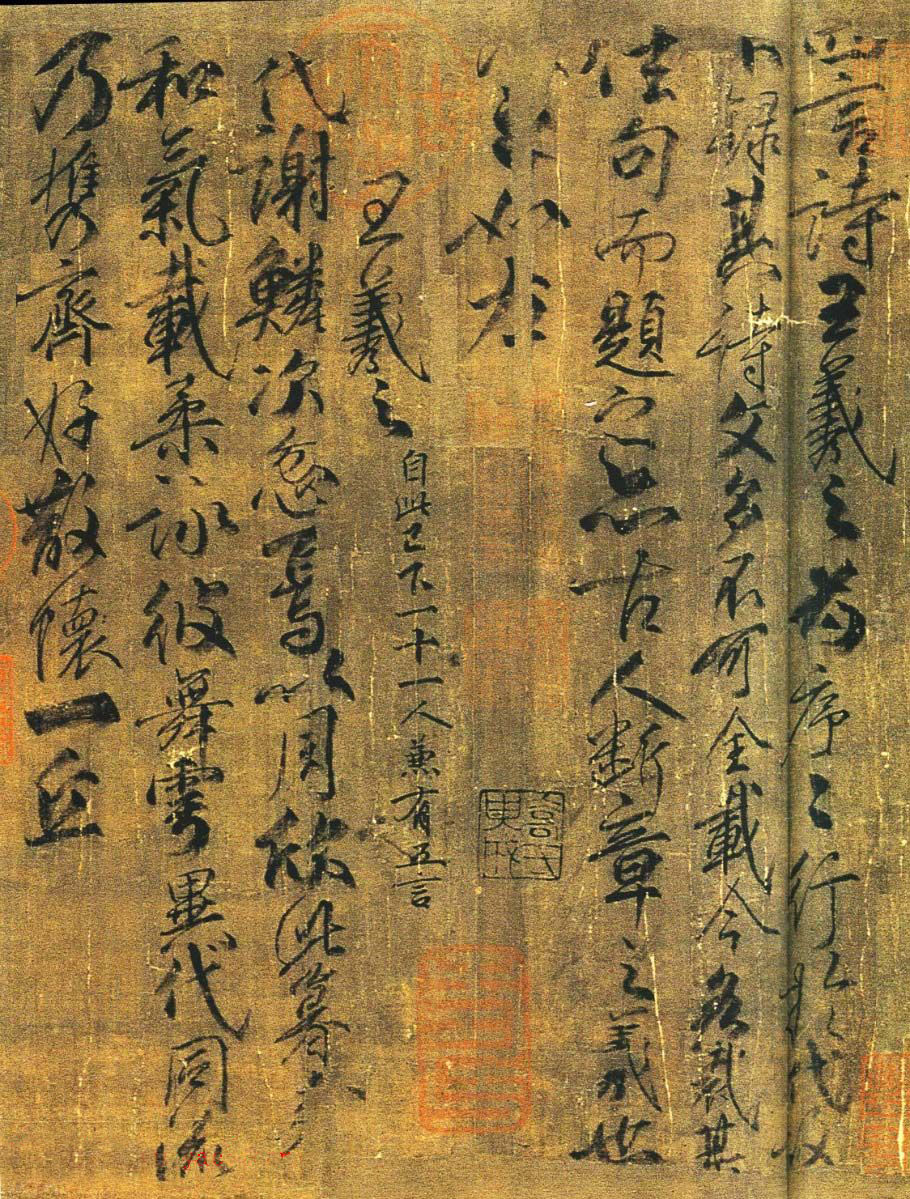 四言詩王羲之為序〻行於代故
不録其詩文多不可全載今各裁其
佳句而題之亦古人斷章之義也
如左
王羲之 自此已下一十一人兼有五言
代謝鱗次忽焉以周欣此暮春
和氣載柔詠彼舞雩異代同流
乃攜齊好散懷一丘